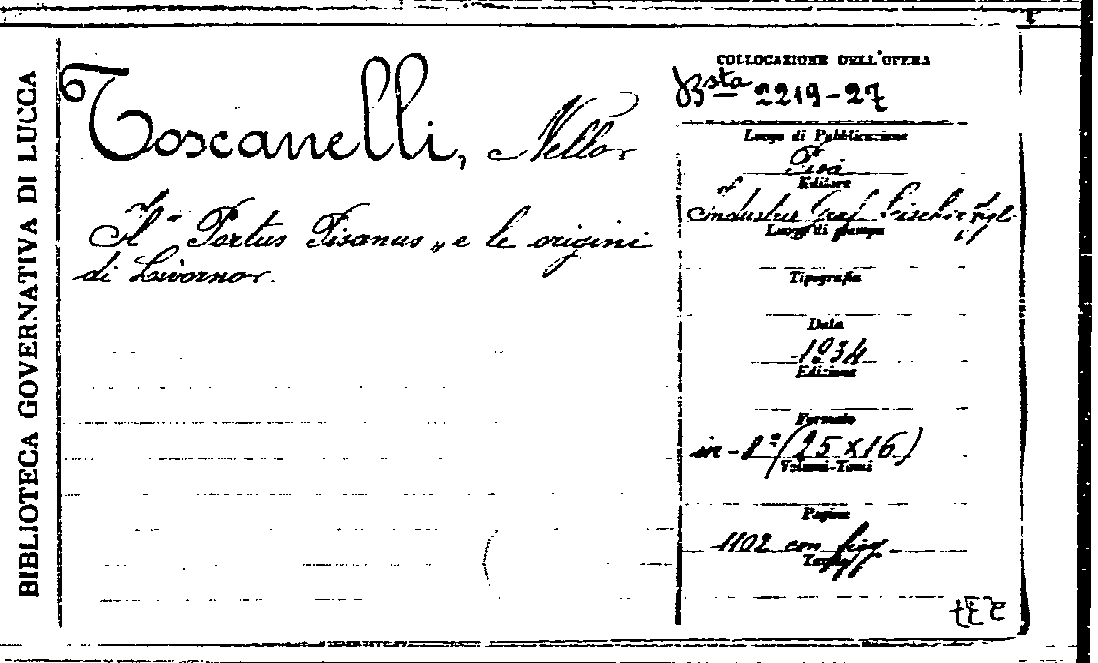 BIBLIOTECA GOVERNATIVA DI LUCCA
Toscanelli, Nello
Il "Portus Pisanus" e le origini
di Livorno.
COLLOCAZIONE DELL'OPERA
Bsta 2219-27
Luogo di Pubblicazione
Pisa
Editore
Industrie Graf.
Luogo di stampa
Tipografia
Data
1934
Edizione
Formato
in-8º (25 x 16)
Volumi-Tomi
Pagine
1102 con figg.
Tavole